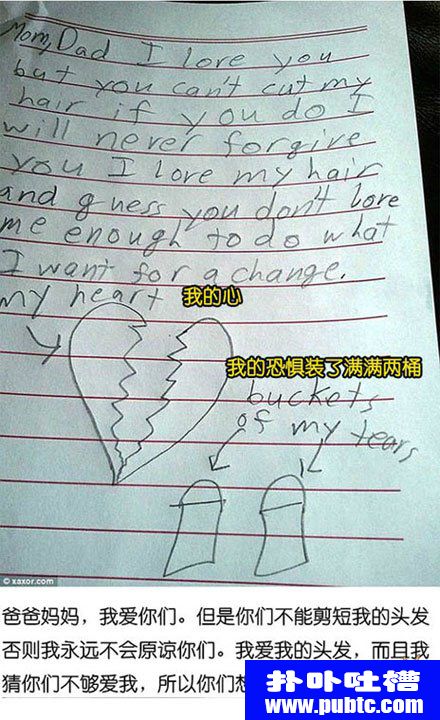 Mom, Dad I love you
but you can't cut my
hair if you do I
will never forgive
you I love my hair
and guess you don't love
me enough to do what
I want for a change.
my heart 我的心
我的恐惧装了满满两桶
buckets
of my tears
© xaxor.com
爸爸妈妈，我爱你们。但是你们不能剪短我的头发
否则我永远不会原谅你们。我爱我的头发，而且我
猜你们不够爱我，所以你们想
扑卟吐槽
www.pubtc.com